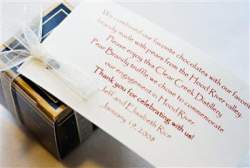 We combined our favorite chocolates with our favorite
brandy made with pears from the Hood River valley.
Please enjoy this Clear Creek Distillery
Pear Brandy truffle we chose to commemorate
our engagement in Hood River.
Thank you for celebrating with us!
Jeff and Elizabeth Rice
January 19, 2008